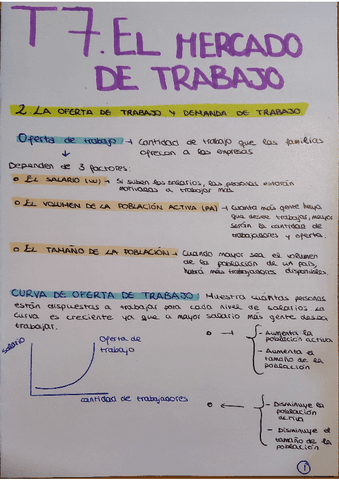 T7. EL MERCADO
DE TRABAJO
2 LA OFERTA DE TRABAJO Y DEMANDA DE TRABAJO
Oferta de trabajo → Cantidad de trabajo que las familias
ofrecen a las empresas
Dependen de 3 factores:
EL SALARIO (W) → Si suben los salarios, las personas estarán
motivadas a trabajar más
EL VOLUMEN DE LA POBLACIÓN ACTIVA (PA) → cuanta más gente haya
que desee trabajar, mayor
serán la cantidad de
trabajadores y oferta.
EL TAMAÑO DE LA POBLACIÓN → Cuando mayor sea el volumen
de la población de un país,
habrá más trabajadores disponibles.
CURVA DE OFERTA DE TRABAJO Muestra cuántas personas
están dispuestas a trabajar para cada nivel de salarios. La
curva es creciente ya que a mayor salario más gente desea
trabajar.
salario
Oferta de
trabajo
cantidad de trabajadores
→ - Aumenta la
población activa
- Aumenta el
tamaño de la
población
← - Disminuye la
población
activa
- Disminuye el
tamaño de la
población
1